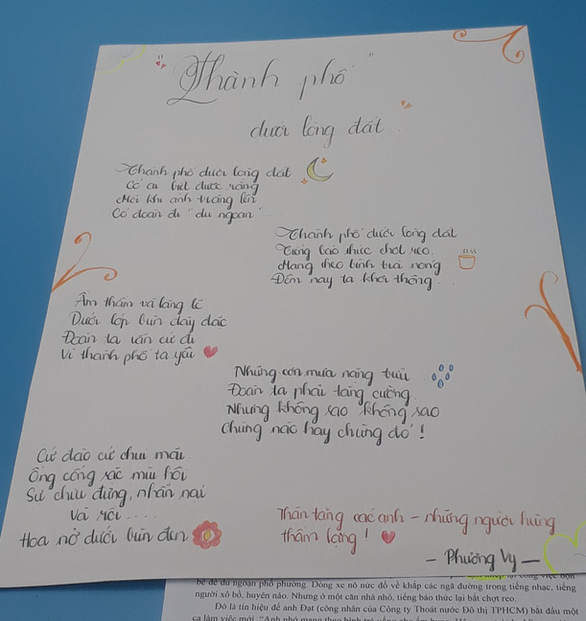 "Thành phố"
dưới lòng đất
Thành phố dưới lòng đất
Có ai biết được rằng
Mỗi khi ánh trăng lên
Có đoàn đi "du ngoạn"
Thành phố dưới lòng đất
Tiếng báo thức chợt reo
Mang theo bình trà nóng
Đêm nay ta khơi thông...
Âm thầm và lặng lẽ
Dưới lớp bùn dày đặc
Đoàn ta vẫn cứ đi
Vì thành phố ta yêu
Những cơn mưa nặng trĩu
Đoàn ta phải tăng cường
Nhưng không sao không sao
Chừng nào hay chừng đó!
Cứ đào cứ chui mãi
Ống cống sặc mùi hôi
Sự chịu đựng, nhẫn nại
Và rồi....
Hoa nở dưới bùn đen
Thân tặng các anh – những người hùng
thầm lặng!
– Phương Vy –
bè để du ngoạn phố phường. Dòng xe nô nức đổ về khắp các ngã đường trong tiếng nhạc, tiếng
người xô bồ, huyên náo. Nhưng ở một căn nhà nhỏ, tiếng báo thức lại bất chợt reo.
Đó là tín hiệu để anh Đạt (công nhân của Công ty Thoát nước Đô thị TPHCM) bắt đầu một